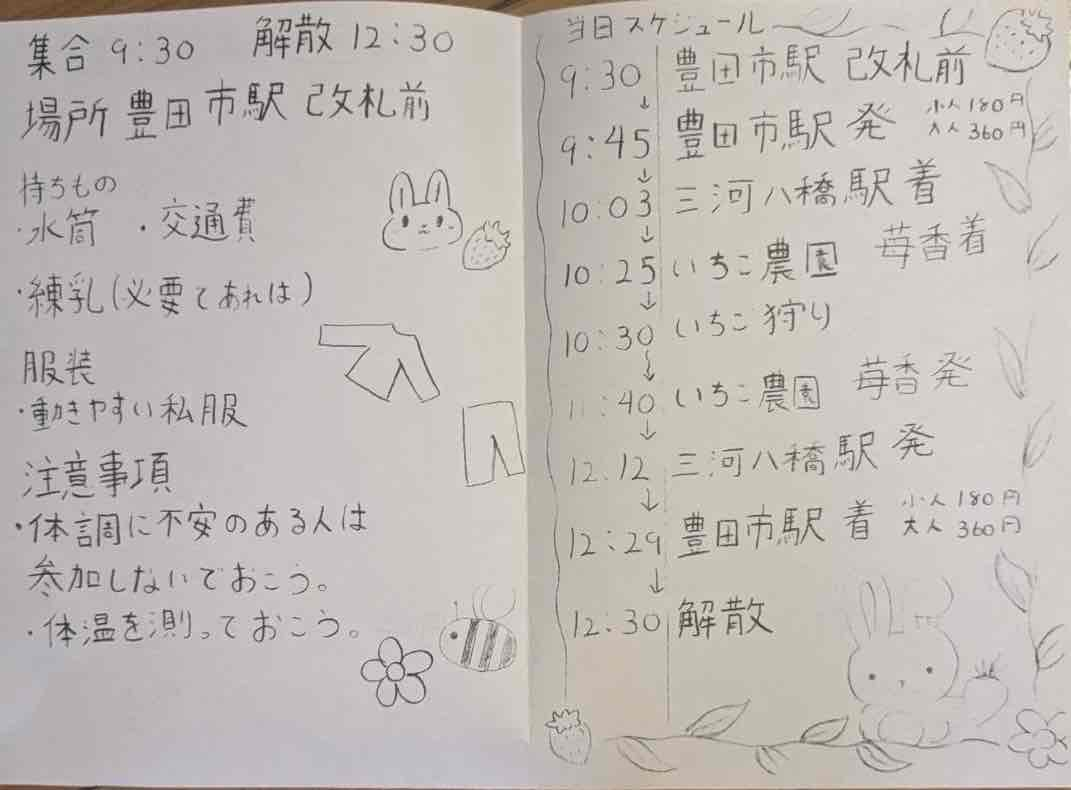 集合 9:30 解散 12:30
場所 豊田市駅 改札前
持ちもの
・水筒 ・交通費
・練乳(必要であれば)
服装
・動きやすい私服
注意事項
・体調に不安のある人は
参加しないでおこう。
・体温を測っておこう。
当日スケジュール
9:30 豊田市駅 改札前
↓
9:45 豊田市駅 発 小人180円
大人360円
↓
10:03 三河八橋駅 着
↓
10:25 いちご農園 苺香着
↓
10:30 いちご狩り
↓
11:40 いちご農園 苺香発
↓
12.12 三河八橋駅 発
↓
12:29 豊田市駅 着 小人180円
大人360円
↓
12:30 解散